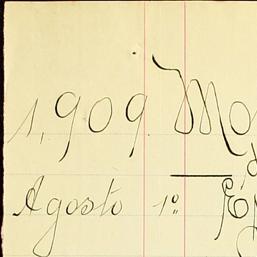 1,909. Mo
Agosto 1º